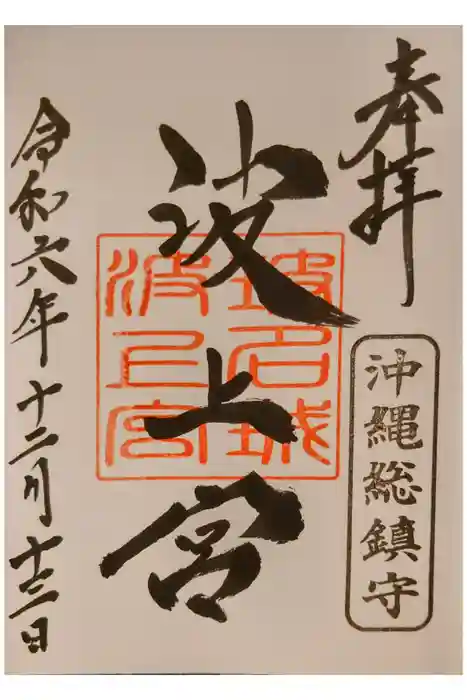 奉拝
沖縄総鎮守
波上宮
玻名城
波上宮
令和六年十二月十三日